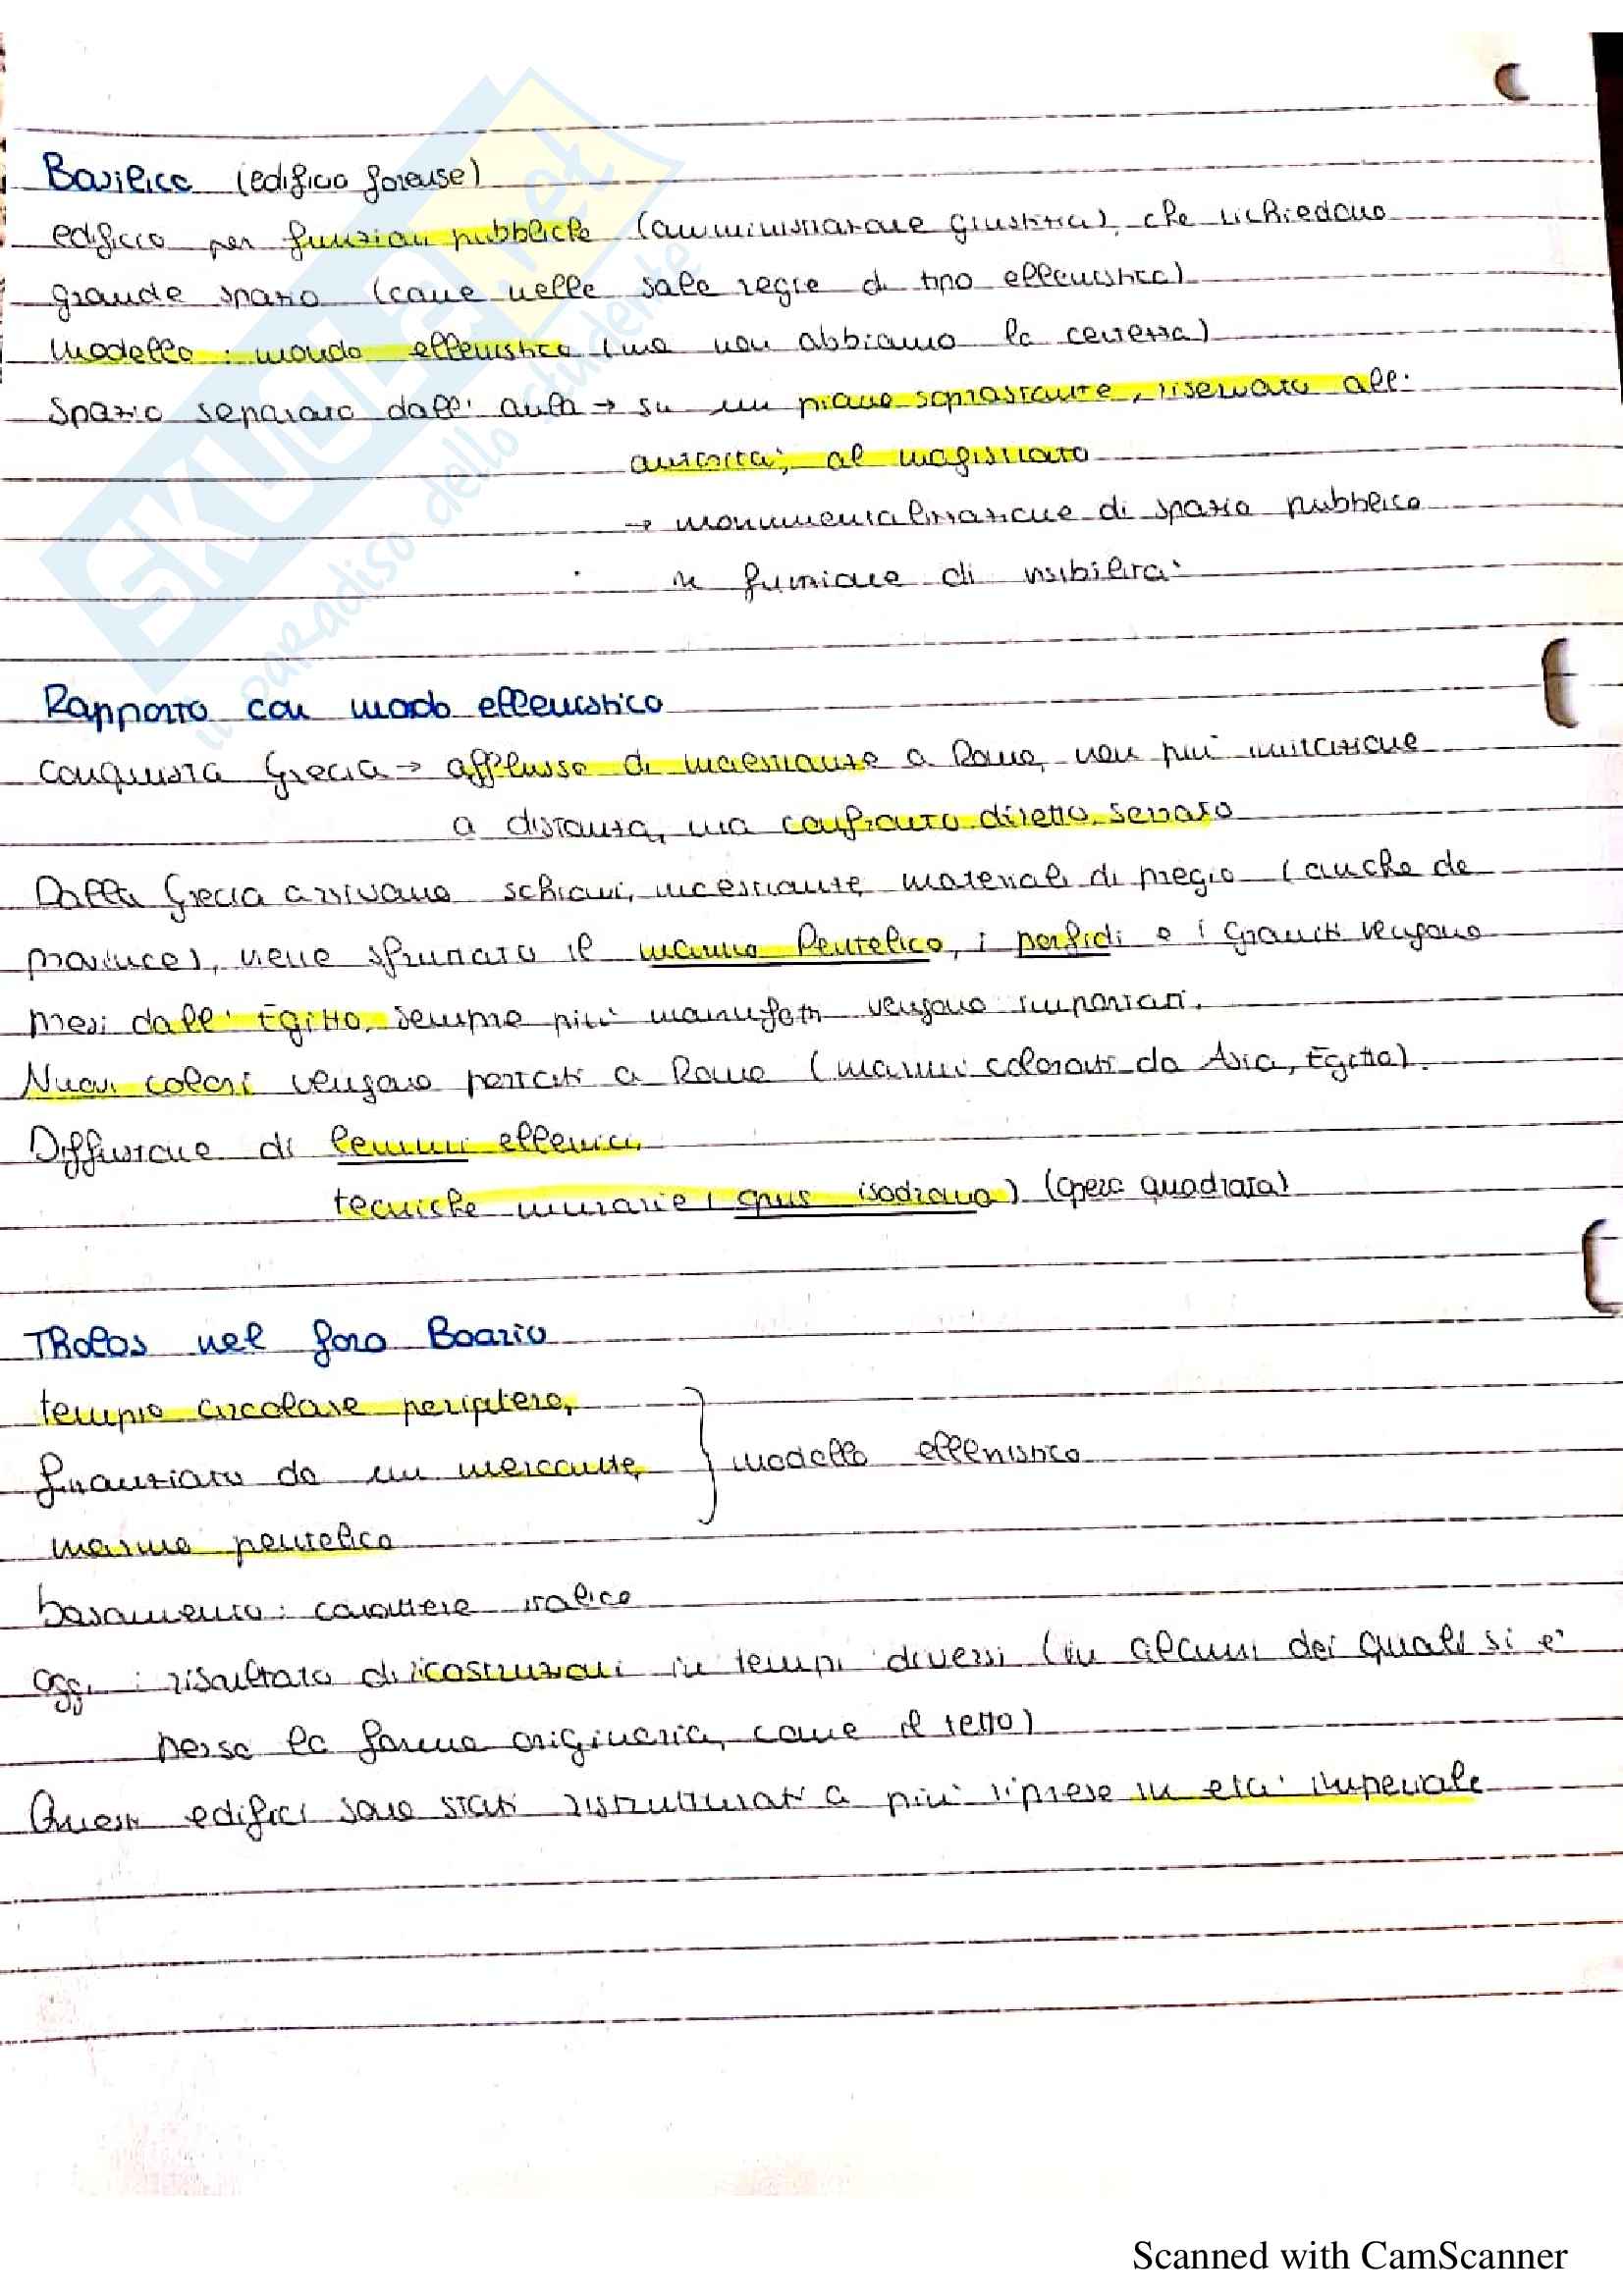 Basilica (edificio forense)
edificio per funzioni pubbliche (amministrazione giustizia), che richiedono
grande spazio (come nelle sale regie di tipo ellenistico)
modello: mondo ellenistico (ma non abbiamo la certezza)
Spazio separato dall'aula → su un piano soprastante, riservato all'
autorità, al magistrato
→ monumentalizzazione di spazio pubblico
in funzione di visibilità
Rapporto con mondo ellenistico
conquista Grecia → afflusso di maestranze a Roma, non più imitazione
a distanza, ma confronto diretto, serrato
Dalla Grecia arrivano schiavi, maestranze, materiali di pregio (anche da
province), viene sfruttato il marmo Pentelico, i porfidi e i Graniti vengono
presi dall'Egitto, sempre più manufatti vengono importati.
Nuovi colori vengono portati a Roma (marmi colorati da Asia, Egitto).
Diffusione di termini ellenici,
tecniche murarie (opus isodroma) (opera quadrata)
THolos nel foro Boario
tempio circolare periptero,
finanziato da un mercante,
marmo pentelico
modello ellenistico
basamento: carattere italico
oggi: risultato di ricostruzioni in tempi diversi (in alcuni dei quali si è
persa la forma originaria, come il tetto)
Questi edifici sono stati ristrutturati a più riprese in età imperiale
SKUOLA.net
il paradiso dello studente
Scanned with CamScanner